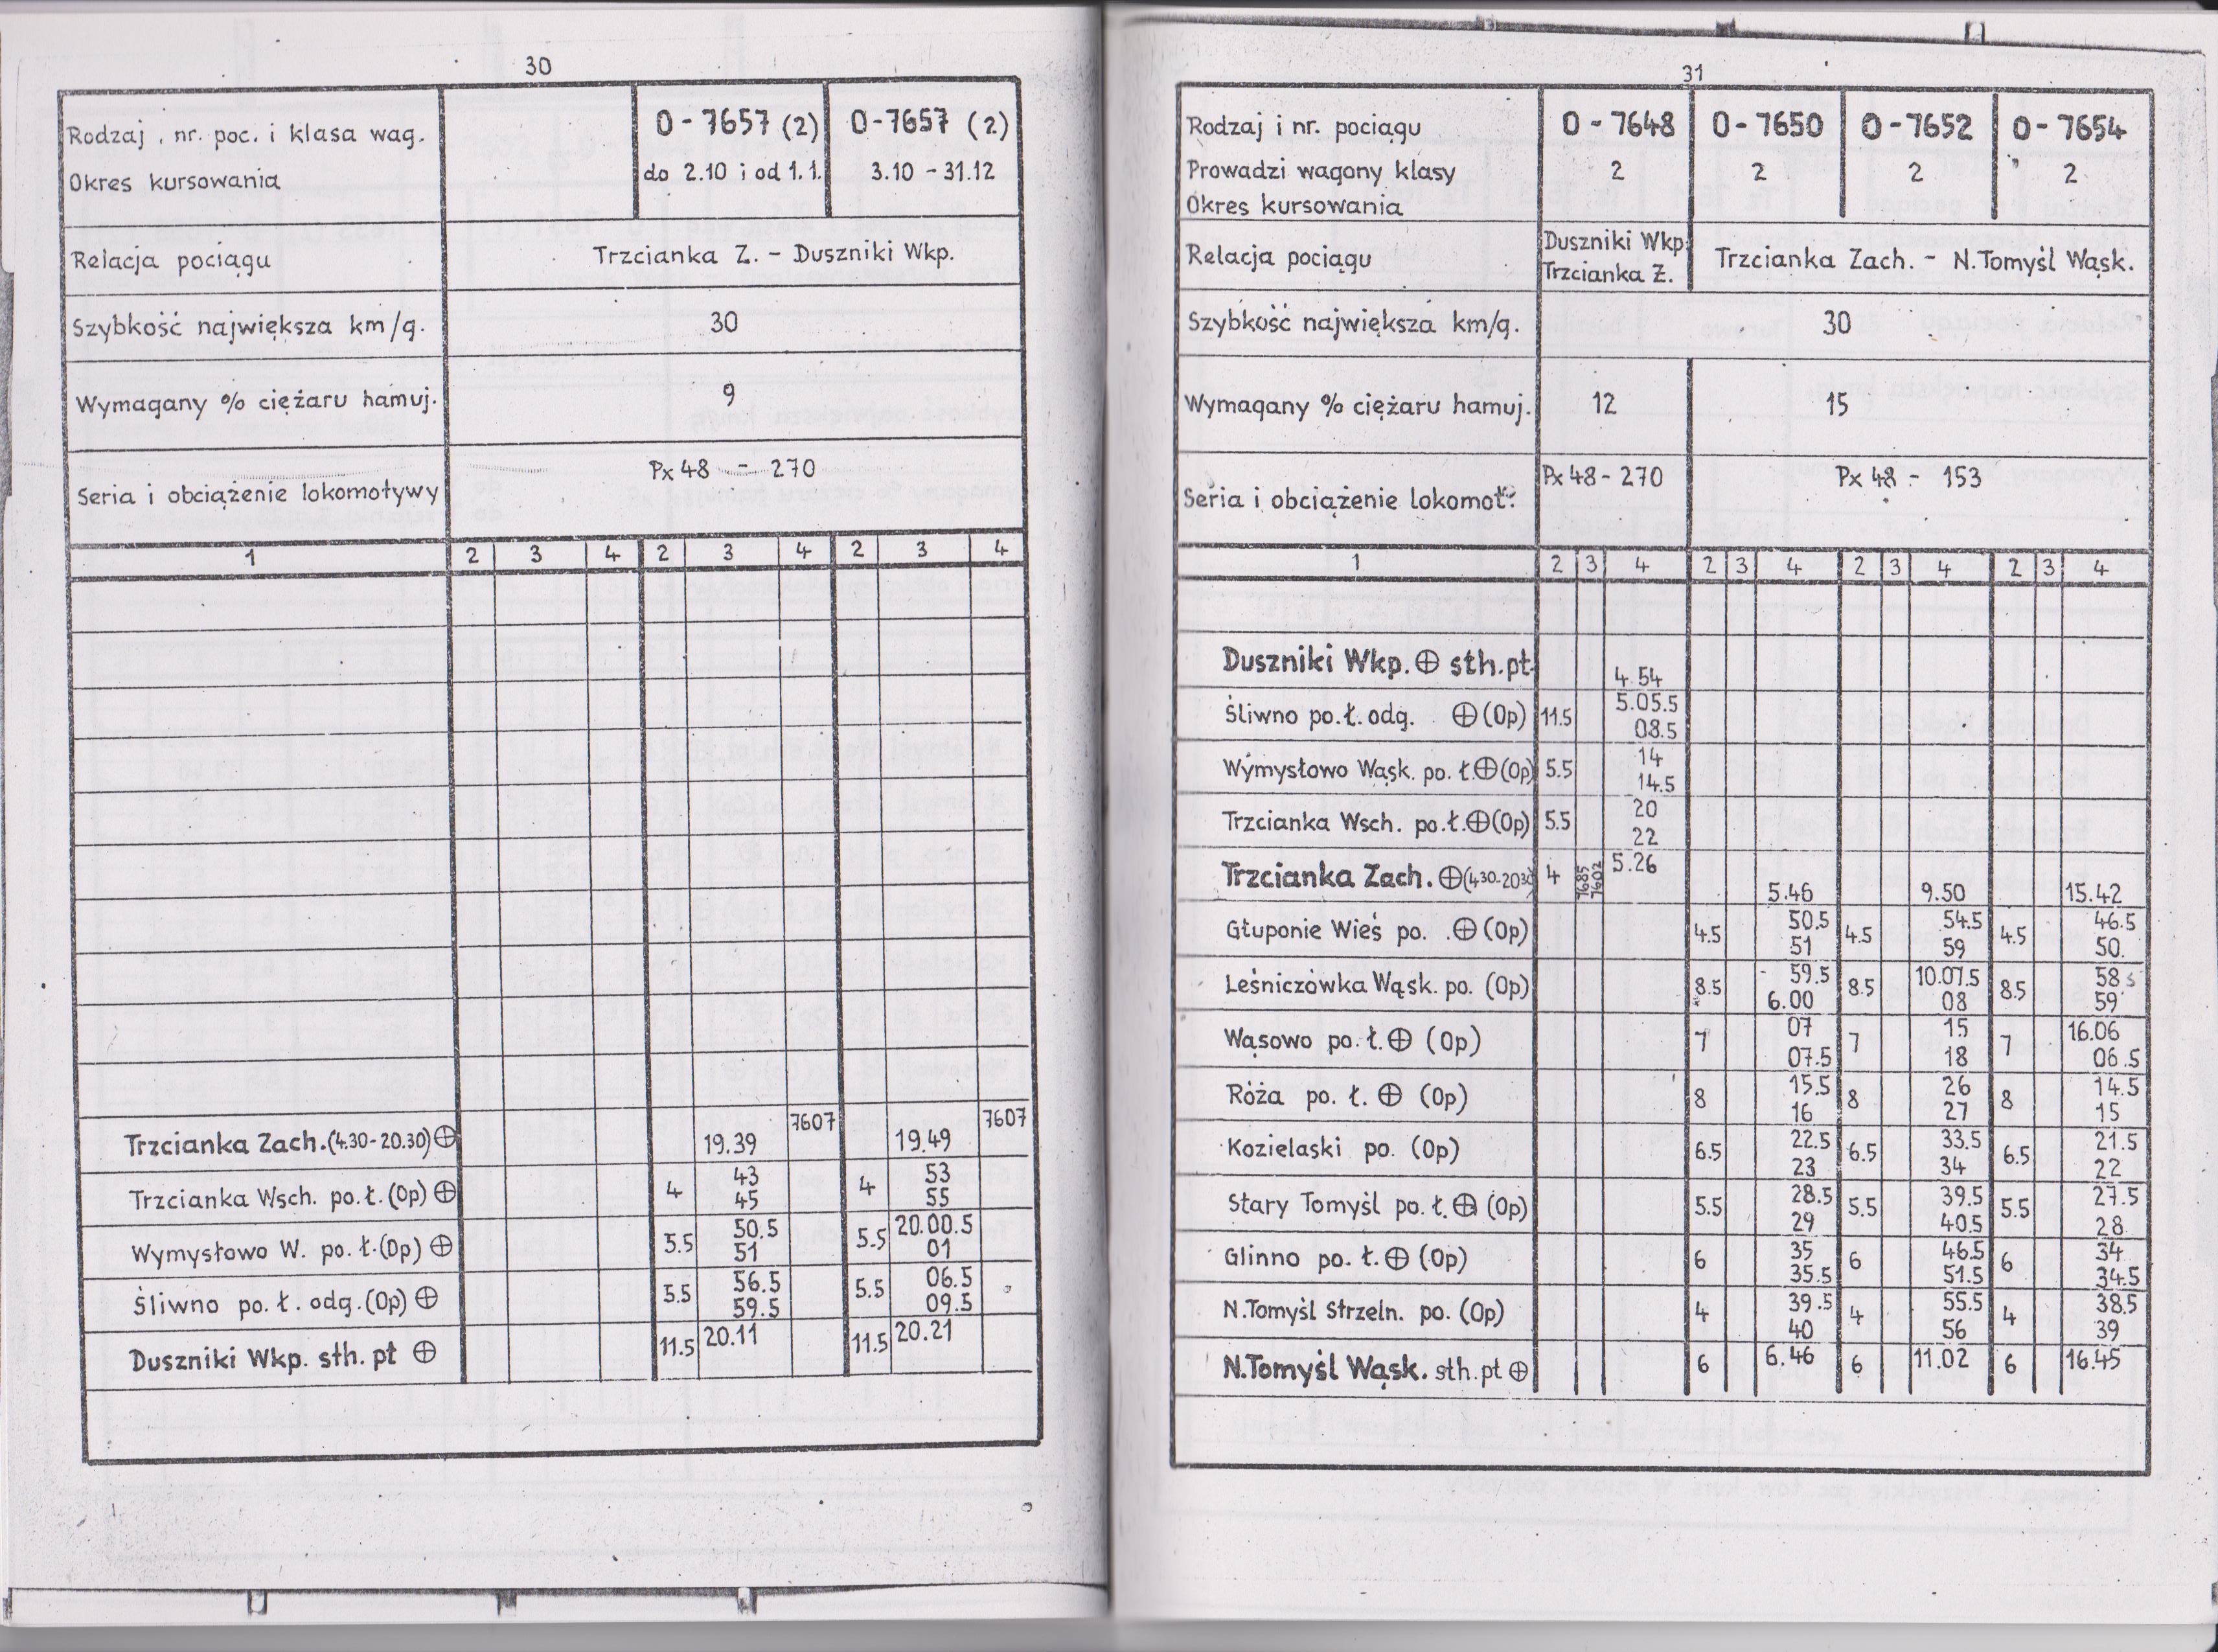 30
Rodzaj , nr. poc. i klasa wag. O-7657 (2) O-7657 (2)
Okres kursowania do 2.10 i od 1.1. 3.10 - 31.12
Relacja pociągu Trzcianka Z. - Duszniki Wkp.
Szybkość największa km/g. 30
Wymagany % ciężaru hamuj. 9
Seria i obciążenie lokomotywy Px 48 - 270
1 2 3 4 2 3 4 2 3 4
Trzcianka Zach.(4.30-20.30)⊕ 19.39 7607 19.49 7607
Trzcianka Wsch. po.ł.(Op) ⊕ 4 43 4 53
45 55
Wymysłowo W. po. ł.(Op) ⊕ 5.5 50.5 5.5 20.00.5
51 01
Śliwno po. ł. odg.(Op) ⊕ 5.5 56.5 5.5 06.5
59.5 09.5
Duszniki Wkp. sth. pt ⊕ 11.5 20.11 11.5 20.21
31
Rodzaj i nr. pociągu O-7648 O-7650 O-7652 O-7654
Prowadzi wagony klasy 2 2 2 2
Okres kursowania
Relacja pociągu Duszniki Wkp. Trzcianka Z. Trzcianka Zach. - N.Tomyśl Wąsk.
Szybkość największa km/g. 30
Wymagany % ciężaru hamuj. 12 15
Seria i obciążenie lokomot. Px 48 - 270 Px 48 - 153
1 2 3 4 2 3 4 2 3 4 2 3 4
Duszniki Wkp. ⊕ sth.pt. 4.54
Śliwno po.ł. odg. ⊕(Op) 11.5 5.05.5
08.5
Wymysłowo Wąsk. po. ł.⊕(Op) 5.5 14
14.5
Trzcianka Wsch. po.ł.⊕(Op) 5.5 20
22
Trzcianka Zach. ⊕(4³⁰-20³⁰) 4 7685 7602 5.26
5.46 9.50 15.42
Głuponie Wieś po. ⊕(Op) 4.5 50.5 4.5 54.5 4.5 46.5
51 59 50.
Leśniczówka Wąsk. po. (Op) 8.5 59.5 8.5 10.07.5 8.5 58.5
6.00 08 59
Wąsowo po. ł. ⊕ (Op) 7 07 7 15 7 16.06
07.5 18 06.5
Róża po. ł. ⊕ (Op) 8 15.5 8 26 8 14.5
16 27 15
Kozielaski po. (Op) 6.5 22.5 6.5 33.5 6.5 21.5
23 34 22
Stary Tomyśl po. ł. ⊕ (Op) 5.5 28.5 5.5 39.5 5.5 27.5
29 40.5 28
Glinno po. ł. ⊕ (Op) 6 35 6 46.5 6 34
35.5 51.5 34.5
N.Tomyśl Strzeln. po. (Op) 4 39.5 4 55.5 4 38.5
40 56 39
N.Tomyśl Wąsk. sth.pt ⊕ 6 6.46 6 11.02 6 16.45